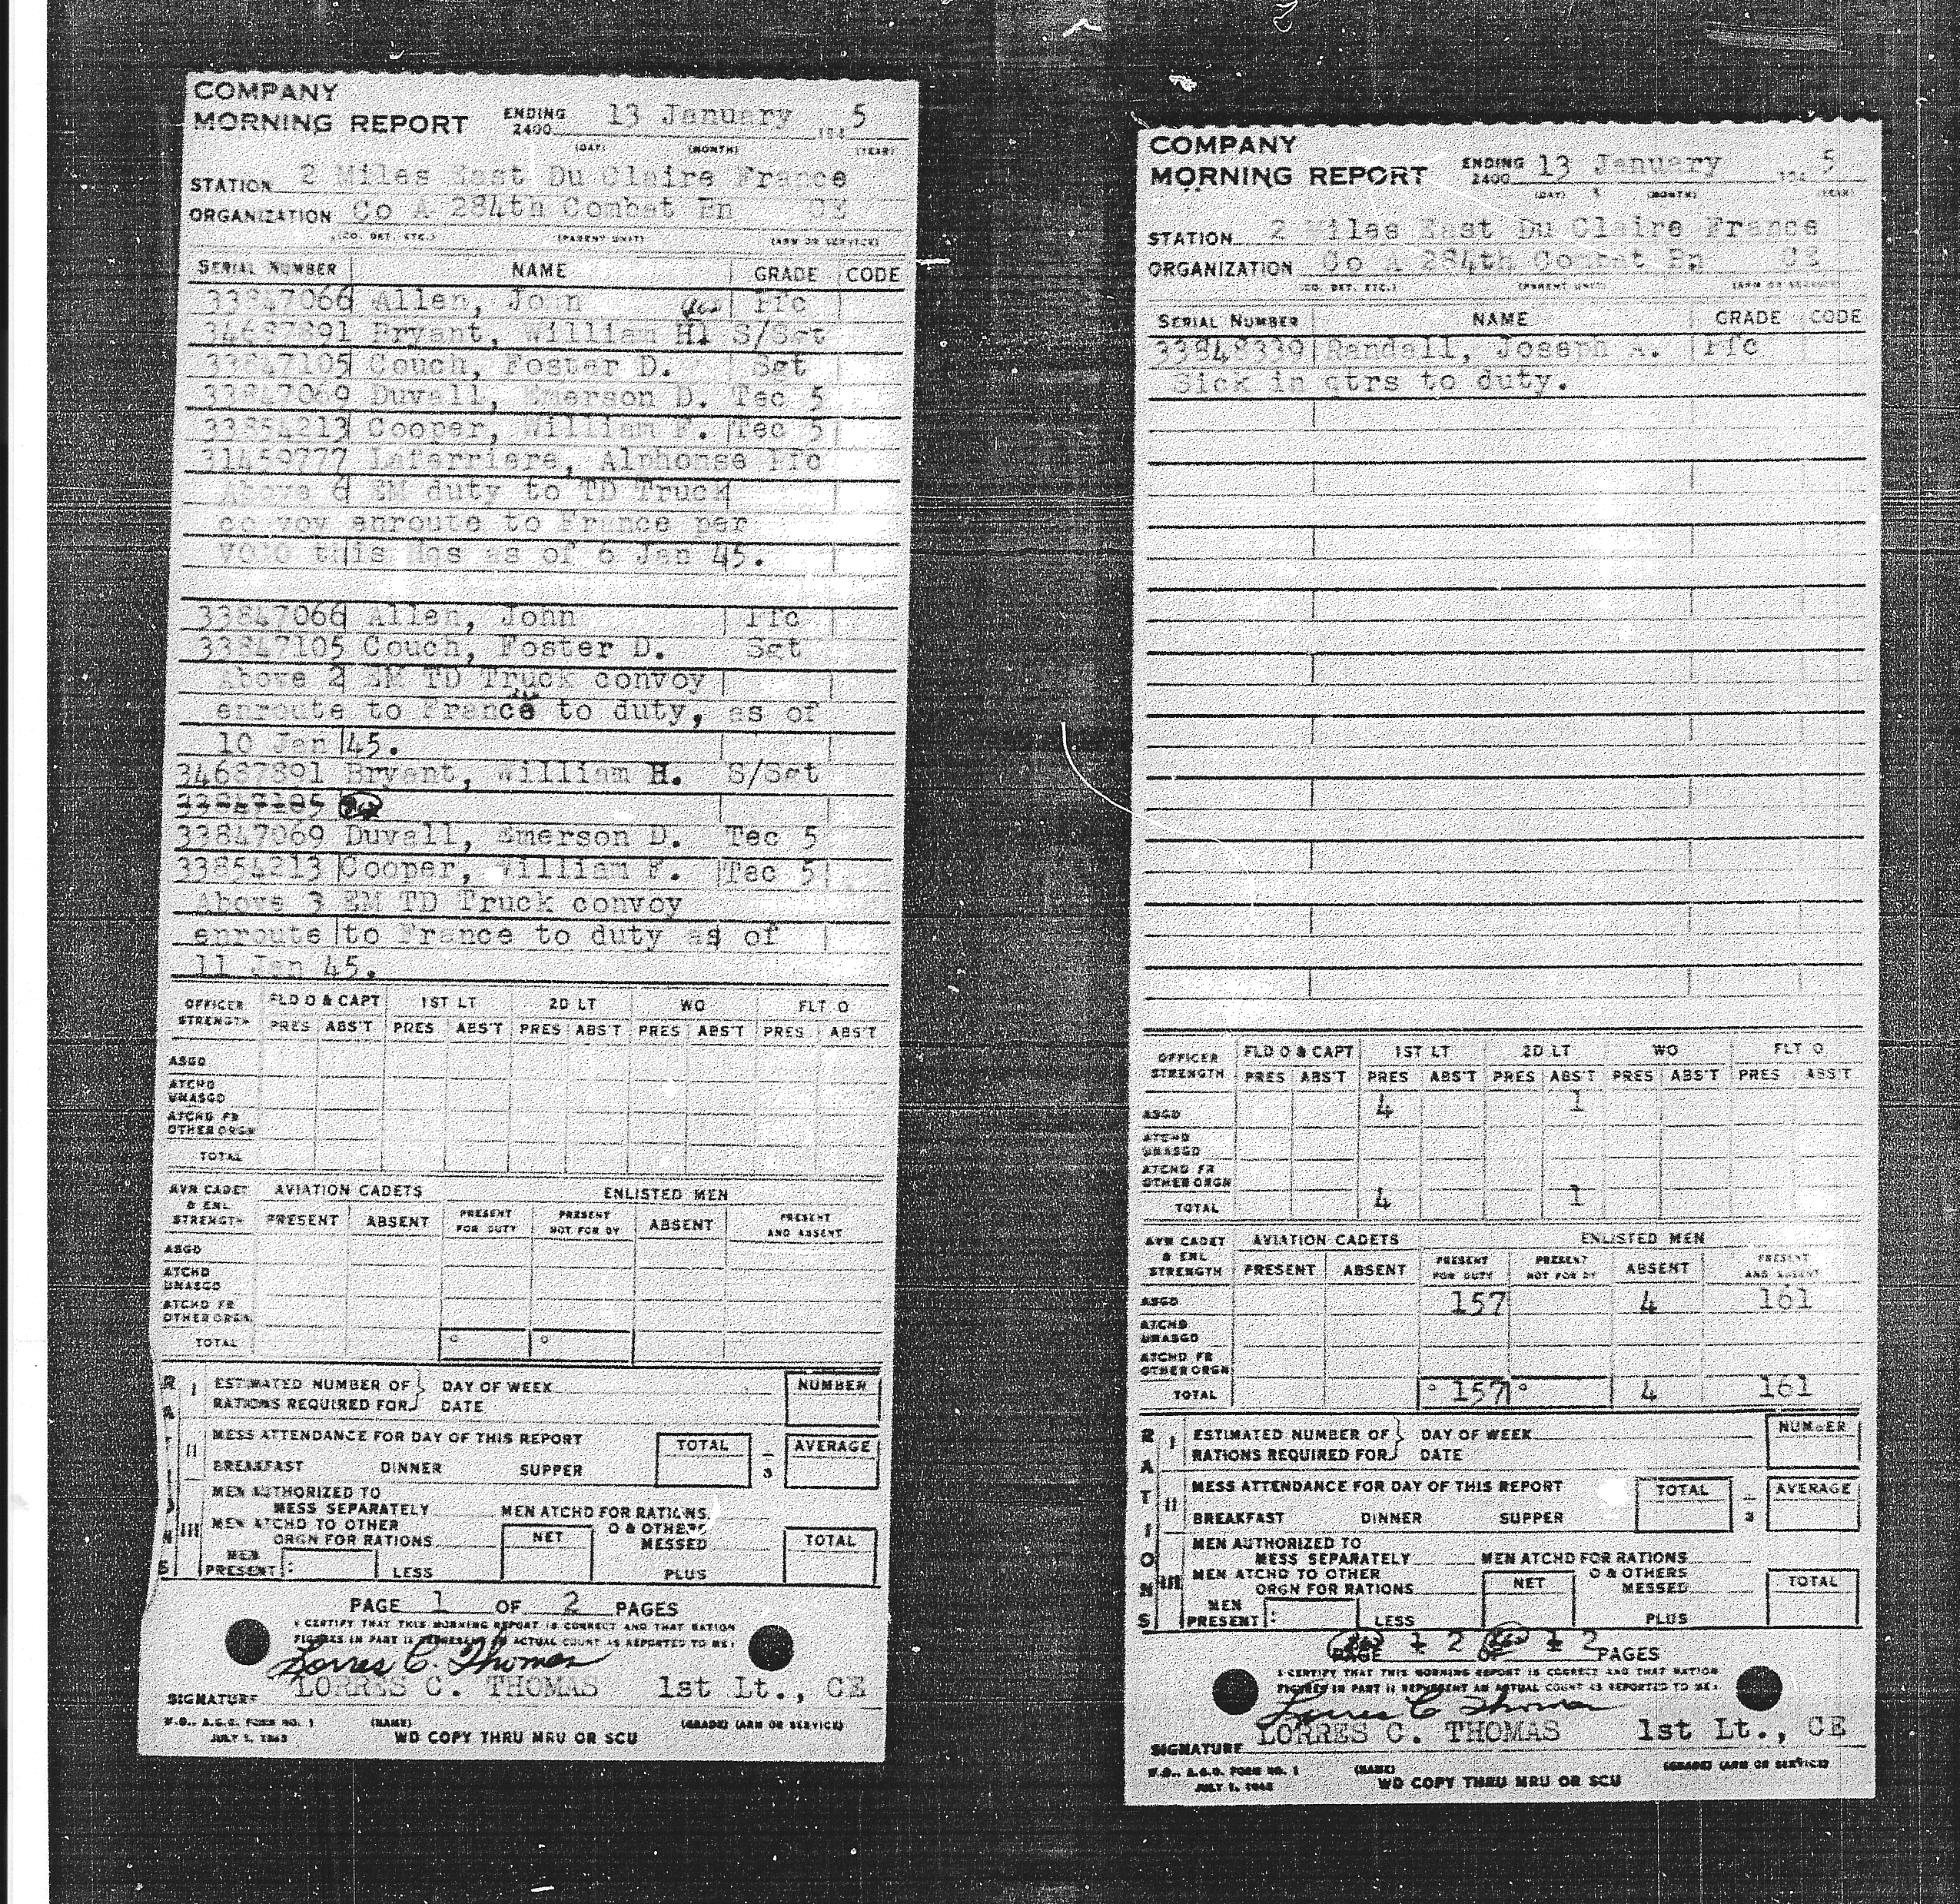 COMPANY
MORNING REPORT ENDING 2400 13 January 194 5
(DAY) (MONTH) (YEAR)
STATION 2 Miles East Du Claire France
ORGANIZATION Co A 284th Combat Bn CE
(CO. DET. ETC.) (PARENT UNIT) (ARM OR SERVICE)
SERIAL NUMBER NAME GRADE CODE
33847066 Allen, John Pfc
34687891 Bryant, William H. S/Sgt
33847105 Couch, Foster D. Sgt
33847069 Duvall, Emerson D. Tec 5
33854213 Cooper, William F. Tec 5
31459777 Laferriere, Alphonse Pfc
Above 6 EM duty to TD Truck
convoy enroute to France per
VOCO this Hqs as of 6 Jan 45.
33847066 Allen, John Pfc
33847105 Couch, Foster D. Sgt
Above 2 EM TD Truck convoy
enroute to France to duty, as of
10 Jan 45.
34687891 Bryant, William H. S/Sgt
33847105
33847069 Duvall, Emerson D. Tec 5
33854213 Cooper, William F. Tec 5
Above 3 EM TD Truck convoy
enroute to France to duty as of
11 Jan 45.
OFFICER STRENGTH FLD O & CAPT 1ST LT 2D LT WO FLT O
PRES ABS'T PRES ABS'T PRES ABS'T PRES ABS'T PRES ABS'T
ASGD
ATCHD UNASGD
ATCHD FR OTHER ORGN
TOTAL
AVN CADET & ENL STRENGTH AVIATION CADETS ENLISTED MEN
PRESENT ABSENT PRESENT FOR DUTY PRESENT NOT FOR DY ABSENT PRESENT AND ABSENT
ASGD
ATCHD UNASGD
ATCHD FR OTHER ORGN
TOTAL
RATIONS
I ESTIMATED NUMBER OF RATIONS REQUIRED FOR DAY OF WEEK DATE NUMBER
II MESS ATTENDANCE FOR DAY OF THIS REPORT TOTAL ÷ 3 AVERAGE
BREAKFAST DINNER SUPPER
III MEN AUTHORIZED TO MESS SEPARATELY MEN ATCHD FOR RATIONS
MEN ATCHD TO OTHER ORGN FOR RATIONS NET O & OTHERS MESSED TOTAL
MEN PRESENT : LESS PLUS
PAGE 1 OF 2 PAGES
I CERTIFY THAT THIS MORNING REPORT IS CORRECT AND THAT RATION
FIGURES IN PART II REPRESENT AN ACTUAL COUNT AS REPORTED TO ME:
Lorres C. Thomas
SIGNATURE LORRES C. THOMAS 1st Lt., CE
W.D., A.G.O. FORM NO. 1 (NAME) (GRADE) (ARM OR SERVICE)
JULY 1, 1943 WD COPY THRU MRU OR SCU
COMPANY
MORNING REPORT ENDING 2400 13 January 194 5
(DAY) (MONTH) (YEAR)
STATION 2 Miles East Du Claire France
ORGANIZATION Co A 284th Combat Bn CE
(CO. DET. ETC.) (PARENT UNIT) (ARM OR SERVICE)
SERIAL NUMBER NAME GRADE CODE
33848339 Randall, Joseph A. Pfc
Sick in qtrs to duty.
OFFICER STRENGTH FLD O & CAPT 1ST LT 2D LT WO FLT O
PRES ABS'T PRES ABS'T PRES ABS'T PRES ABS'T PRES ABS'T
ASGD 4 1
ATCHD UNASGD
ATCHD FR OTHER ORGN
TOTAL 4 1
AVN CADET & ENL STRENGTH AVIATION CADETS ENLISTED MEN
PRESENT ABSENT PRESENT FOR DUTY PRESENT NOT FOR DY ABSENT PRESENT AND ABSENT
ASGD 157 4 161
ATCHD UNASGD
ATCHD FR OTHER ORGN
TOTAL 157 4 161
RATIONS
I ESTIMATED NUMBER OF RATIONS REQUIRED FOR DAY OF WEEK DATE NUMBER
II MESS ATTENDANCE FOR DAY OF THIS REPORT TOTAL ÷ 3 AVERAGE
BREAKFAST DINNER SUPPER
III MEN AUTHORIZED TO MESS SEPARATELY MEN ATCHD FOR RATIONS
MEN ATCHD TO OTHER ORGN FOR RATIONS NET O & OTHERS MESSED TOTAL
MEN PRESENT : LESS PLUS
PAGE 1 2 OF 1 2 PAGES
I CERTIFY THAT THIS MORNING REPORT IS CORRECT AND THAT RATION
FIGURES IN PART II REPRESENT AN ACTUAL COUNT AS REPORTED TO ME:
Lorres C Thomas
SIGNATURE LORRES C. THOMAS 1st Lt., CE
W.D., A.G.O. FORM NO. 1 (NAME) (GRADE) (ARM OR SERVICE)
JULY 1, 1943 WD COPY THRU MRU OR SCU